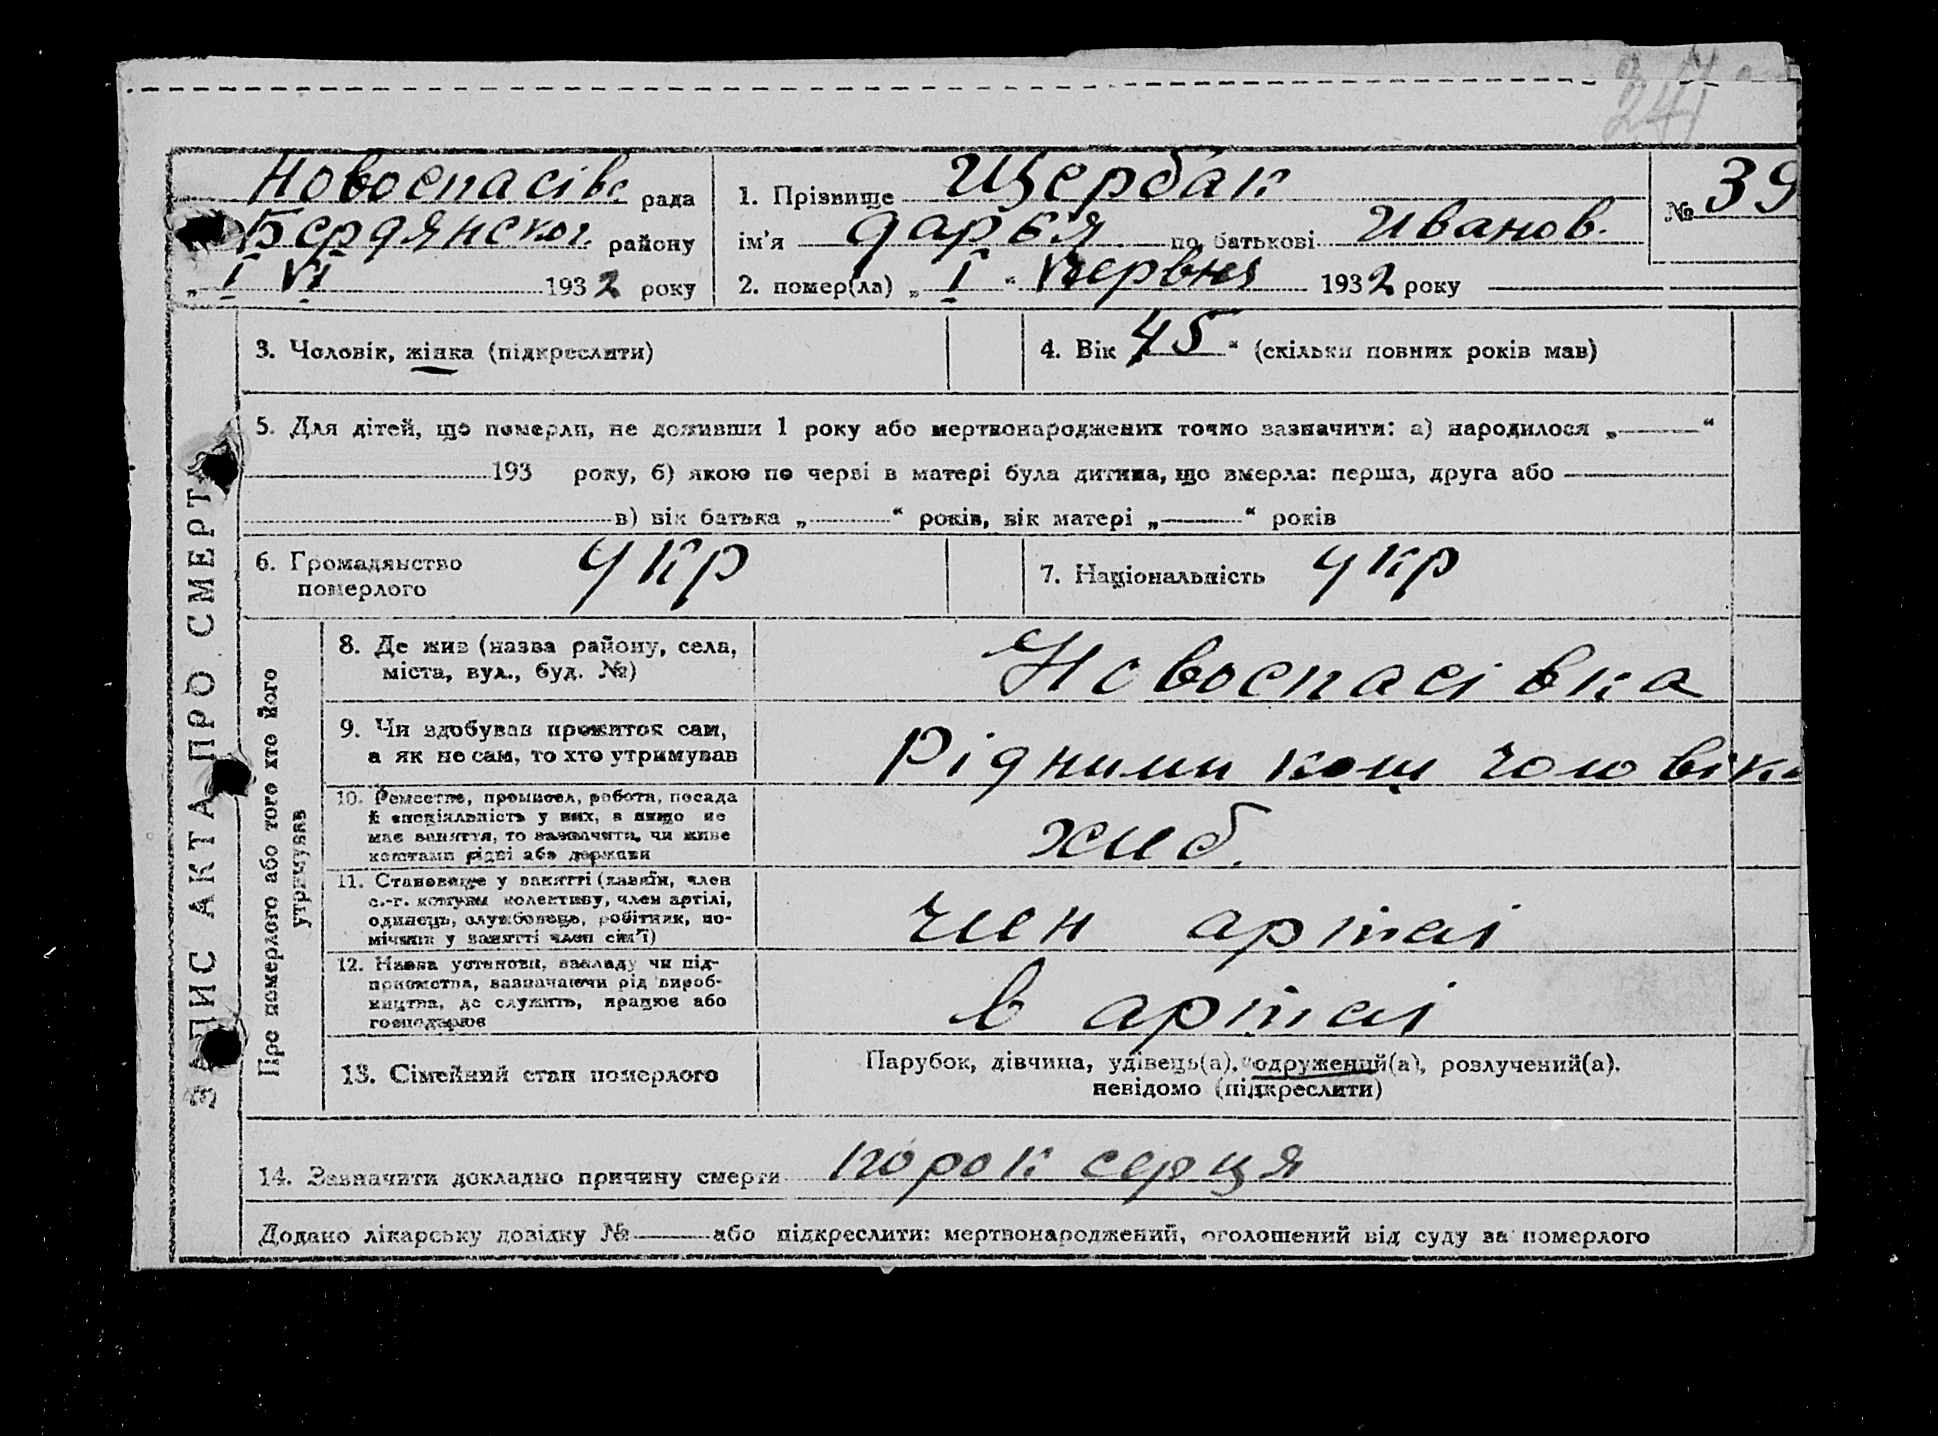 241
Новоспасівс рада
Бердянског району
„ I VI 1932 року
1. Прізвище Щербак
ім'я дарья по батькові Иванов.
2. помер(ла) „ I “ Червня 1932 року
№ 39
3. Чоловік, жінка (підкреслити)
4. Вік 45 “ (скільки повних років мав)
5. Для дітей, що померли, не доживши 1 року або мертвонароджених точно зазначити: а) народилося „ “
193 року, б) якою по черзі в матері була дитина, що вмерла: перша, друга або
в) вік батька „ “ років, вік матері „ “ років
6. Громадянство
померлого
укр
7. Національність укр
ЗАПИС АКТА ПРО СМЕРТЬ
Про померлого або того хто його
утримував
8. Де жив (назва району, села,
міста, вул., буд. №)
Новоспасівка
9. Чи здобував прожиток сам,
а як не сам, то хто утримував
Рідними кошт чоловіка
10. Ремество, промисел, робота, посада
й спеціяльність у них, а якщо не
має заняття, то зазначити, чи живе
коштами рідні або держави
хліб.
11. Становище у занятті (хазяїн, член
с.-г. комуни колективу, член артілі,
одинець, службовець, робітник, по-
мічник у занятті член сім'ї)
член артілі
12. Назва установи, закладу чи під-
приємства, зазначаючи рід вироб-
ництва, де служить, працює або
господарює
в артілі
13. Сімейний стан померлого
Парубок, дівчина, удівець(а), одружений(а), розлучений(а),
невідомо (підкреслити)
14. Зазначити докладно причину смерти порок серця
Додано лікарську довідку № або підкреслити: мертвонароджений, оголошений від суду за померлого